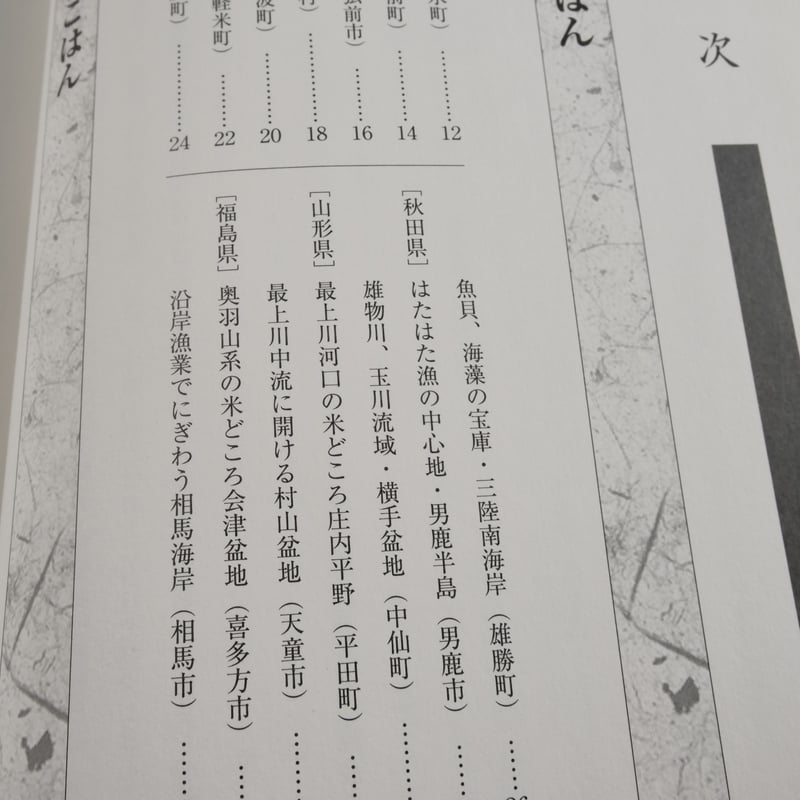 次
はん
ごはん
町）………………12
町）………………14
弘前市）………………16
村）………………18
波町）………………20
軽米町）………………22
町）………………24
魚貝、海藻の宝庫・三陸南海岸（雄勝町）………
［秋田県］はたはた漁の中心地・男鹿半島（男鹿市）………
雄物川、玉川流域・横手盆地（中仙町）………
［山形県］最上川河口の米どころ庄内平野（平田町）………
最上川中流に開ける村山盆地（天童市）………
［福島県］奥羽山系の米どころ会津盆地（喜多方市）………
沿岸漁業でにぎわう相馬海岸（相馬市）………